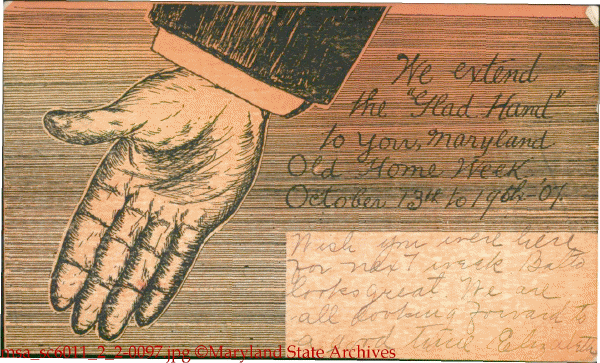 We extend
the "Glad Hand"
to you, Maryland
Old Home Week,
October 13th to 19th-'07.
Wish you were here
for next week Balto
looks great We are
all looking forward to
time Elizabeth
msa_sc6011_2_2-0097.jpg ©Maryland State Archives